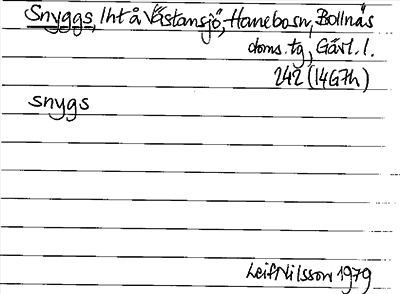 Snyggs, lht å Västansjö, Hanebo sn, Bollnäs
doms. tg, Gävl. l.
242 (14G7h)
snygs
Leif Nilsson 1979